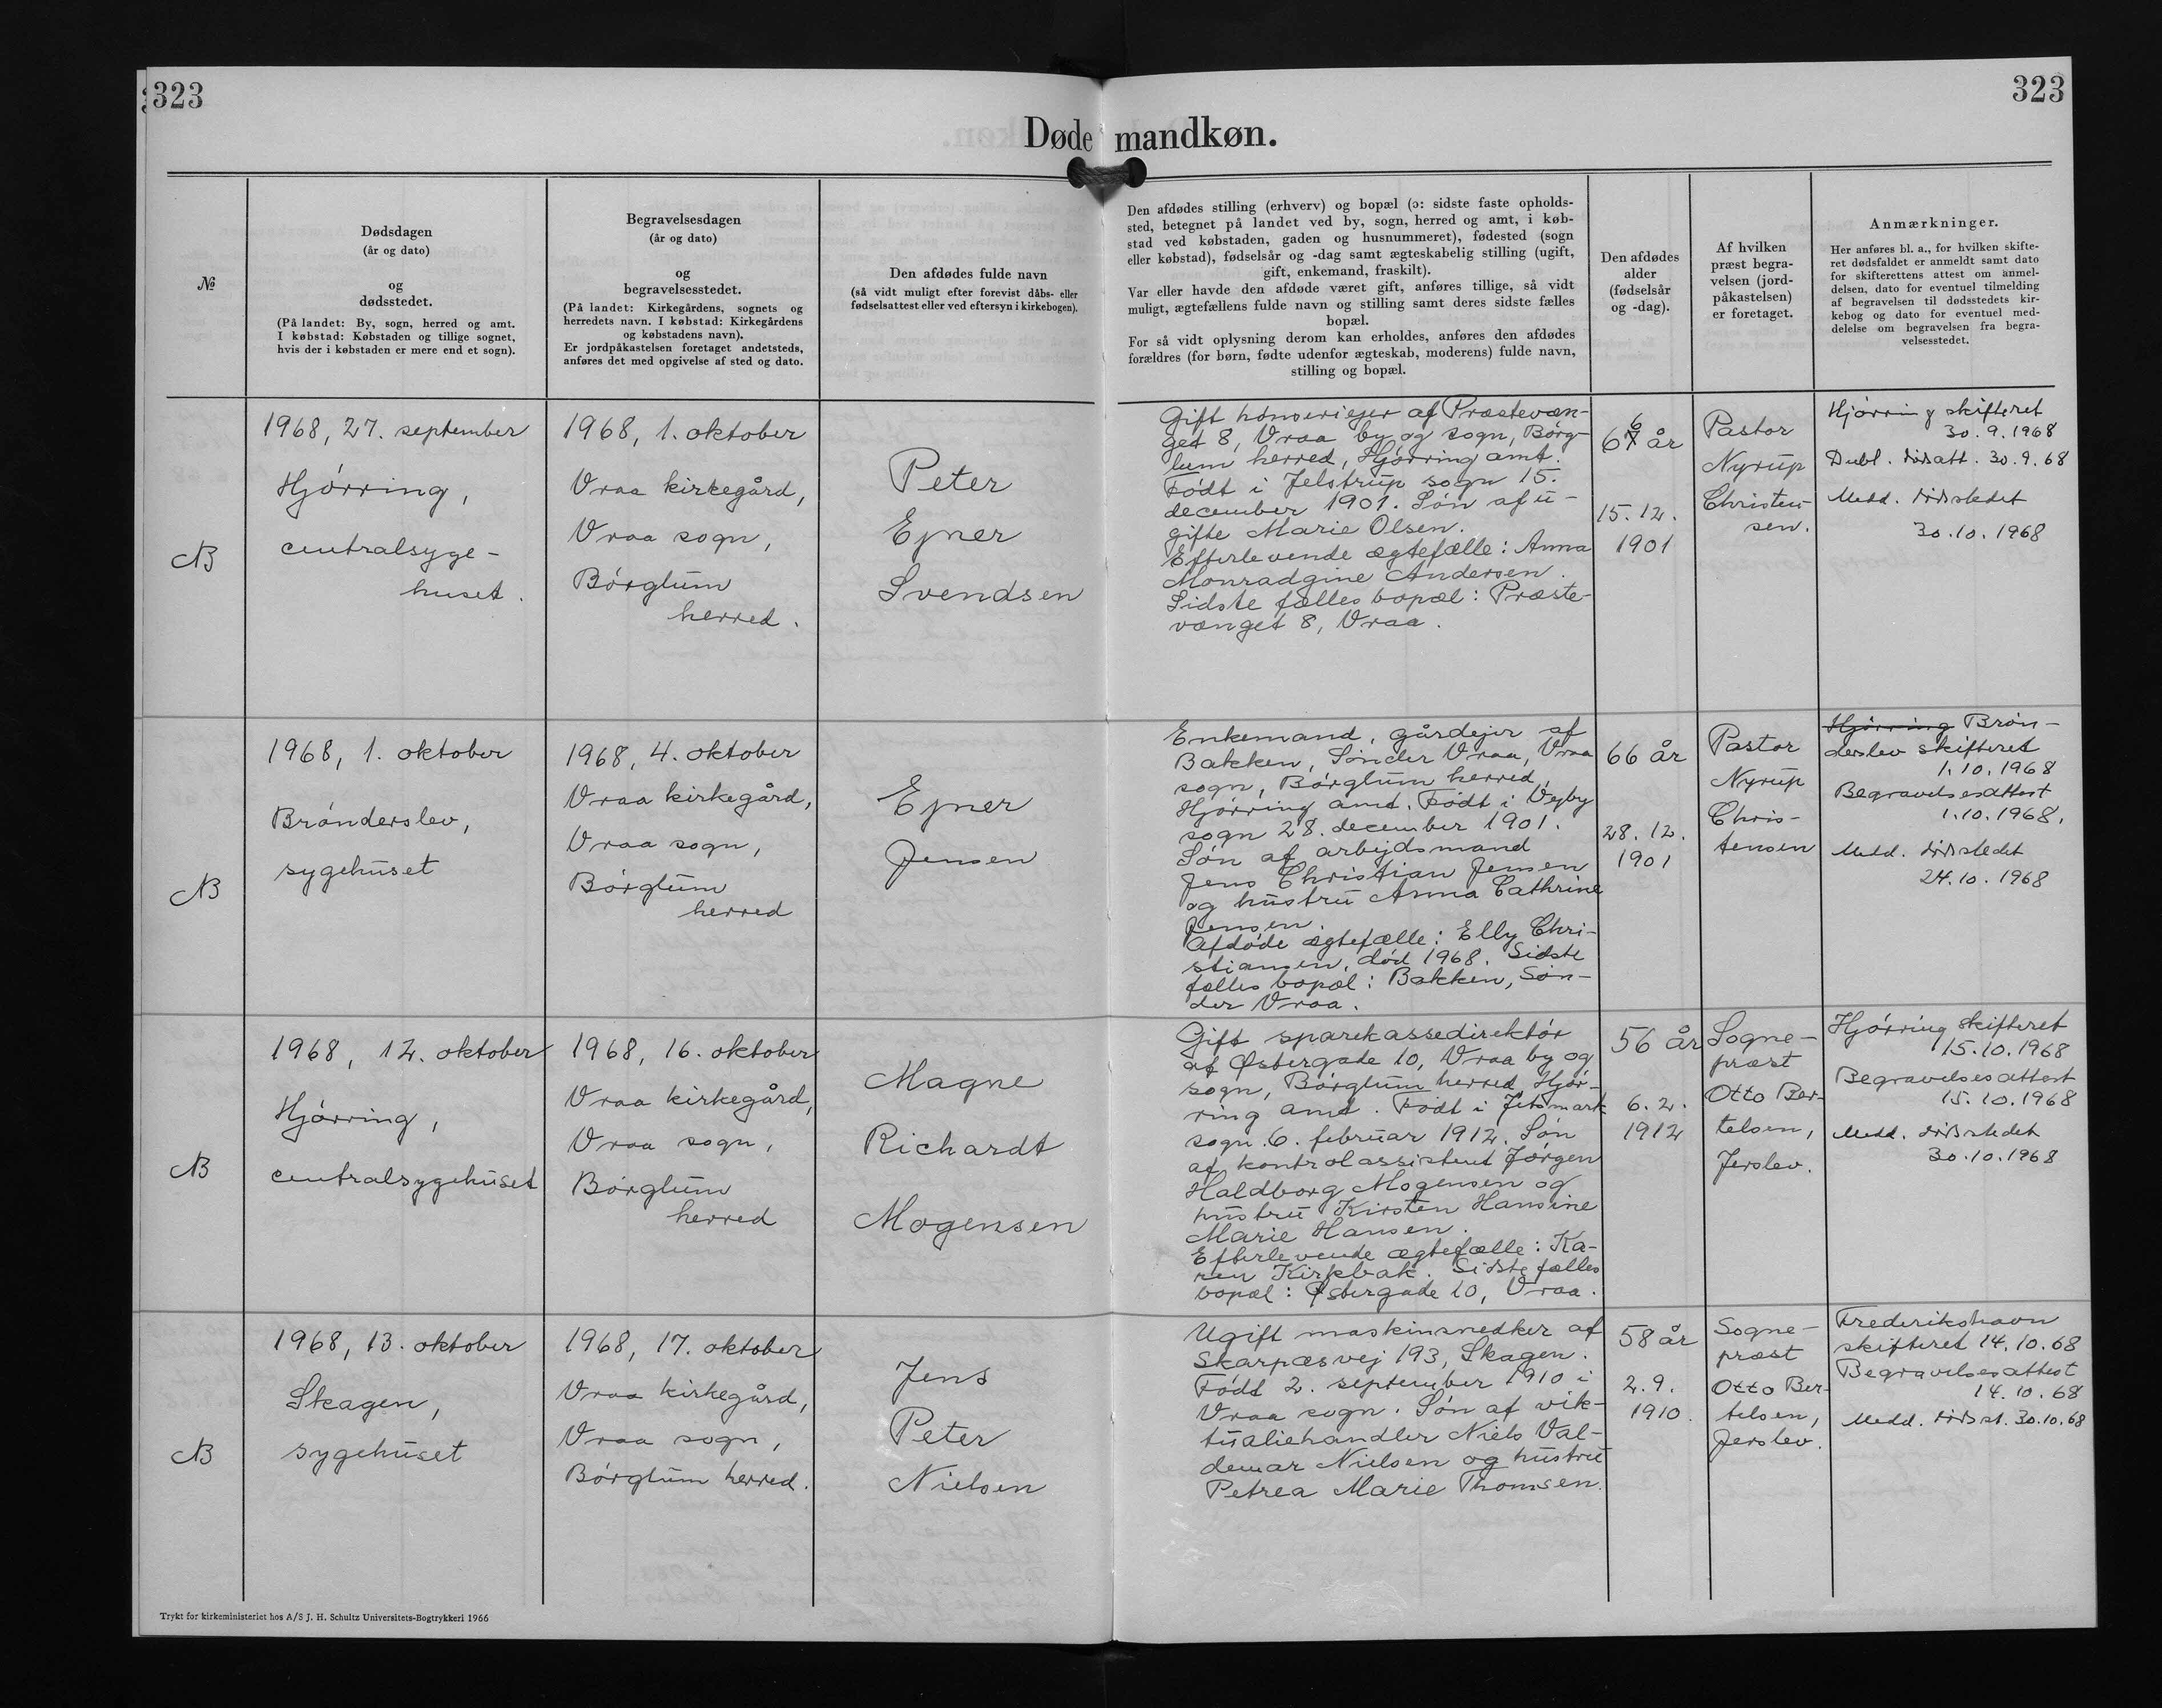 323
323
Døde mandkøn.
№
Dødsdagen
(år og dato)
og
dødsstedet.
(På landet: By, sogn, herred og amt.
I købstad: Købstaden og tillige sognet,
hvis der i købstaden er mere end et sogn).
Begravelsesdagen
(år og dato)
og
begravelsesstedet.
(På landet: Kirkegårdens, sognets og
herredets navn. I købstad: Kirkegårdens
og købstadens navn).
Er jordpåkastelsen foretaget andetsteds,
anføres det med opgivelse af sted og dato.
Den afdødes fulde navn
(så vidt muligt efter forevist dåbs- eller
fødselsattest eller ved eftersyn i kirkebogen).
Den afdødes stilling (erhverv) og bopæl (ɔ: sidste faste opholds-
sted, betegnet på landet ved by, sogn, herred og amt, i køb-
stad ved købstaden, gaden og husnummeret), fødested (sogn
eller købstad), fødselsår og -dag samt ægteskabelig stilling (ugift,
gift, enkemand, fraskilt).
Var eller havde den afdøde været gift, anføres tillige, så vidt
muligt, ægtefællens fulde navn og stilling samt deres sidste fælles
bopæl.
For så vidt oplysning derom kan erholdes, anføres den afdødes
forældres (for børn, fødte udenfor ægteskab, moderens) fulde navn,
stilling og bopæl.
Den afdødes
alder
(fødselsår
og -dag).
Af hvilken
præst begra-
velsen (jord-
påkastelsen)
er foretaget.
Anmærkninger.
Her anføres bl. a., for hvilken skifte-
ret dødsfaldet er anmeldt samt dato
for skifterettens attest om anmel-
delsen, dato for eventuel tilmelding
af begravelsen til dødsstedets kir-
kebog og dato for eventuel med-
delelse om begravelsen fra begra-
velsesstedet.
NB
1968, 27. september
Hjørring,
centralsyge-
huset.
1968, 1. oktober
Vraa kirkegård,
Vraa sogn,
Børglum
herred.
Peter
Ejner
Svendsen
Gift hønseriejer af Præstevæn-
get 8, Vraa by og sogn, Børg-
lum herred, Hjørring amt.
Født i Jelstrup sogn 15.
december 1901. Søn af u-
gifte Marie Olsen.
Efterlevende ægtefælle: Anna
Monradgine Andersen.
Sidste fælles bopæl: Præste-
vænget 8, Vraa.
66 år
15. 12.
1901
Pastor
Nyrup
Christen-
sen.
Hjørring skifteret
30. 9. 1968
Dubl. dødsatt. 30. 9. 68
Medd. dødsstedet
30. 10. 1968
NB
1968, 1. oktober
Brønderslev,
sygehuset
1968, 4. oktober
Vraa kirkegård,
Vraa sogn,
Børglum
herred
Ejner
Jensen
Enkemand, gårdejer af
Bakken, Sønder Vraa, Vraa
sogn, Børglum herred,
Hjørring amt. Født i Vejby
sogn 28. december 1901.
Søn af arbejdsmand
Jens Christian Jensen
og hustru Anna Cathrine
Jensen.
Afdøde ægtefælle: Elly Chri-
stiansen, død 1968. Sidste
fælles bopæl: Bakken, Søn-
der Vraa.
66 år
28. 12.
1901
Pastor
Nyrup
Chris-
tensen
Hjørring Brøn-
derslev skifteret
1. 10. 1968
Begravelsesattest
1. 10. 1968.
Medd. dødsstedet
24. 10. 1968
NB
1968, 12. oktober
Hjørring,
centralsygehuset
1968, 16. oktober
Vraa kirkegård,
Vraa sogn,
Børglum
herred
Magne
Richardt
Mogensen
Gift sparekassedirektør
af Østergade 10, Vraa by og
sogn, Børglum herred, Hjør-
ring amt. Født i Jetsmark
sogn 6. februar 1912. Søn
af kontrolassistent Jørgen
Haldborg Mogensen og
hustru Kirsten Hansine
Marie Hansen.
Efterlevende ægtefælle: Ka-
ren Kirkbak. Sidste fælles
bopæl: Østergade 10, Vraa.
56 år
6. 2.
1912
Sogne-
præst
Otto Ber-
telsen,
Jerslev.
Hjørring skifteret
15. 10. 1968
Begravelsesattest
15. 10. 1968
Medd. dødsstedet
30. 10. 1968
NB
1968, 13. oktober
Skagen,
sygehuset
1968, 17. oktober
Vraa kirkegård,
Vraa sogn,
Børglum herred.
Jens
Peter
Nielsen
Ugift maskinsnedker af
Skarpæsvej 193, Skagen.
Født 2. september 1910 i
Vraa sogn. Søn af vik-
tualiehandler Niels Val-
demar Nielsen og hustru
Petrea Marie Thomsen.
58 år
2. 9.
1910.
Sogne-
præst
Otto Ber-
telsen,
Jerslev.
Frederikshavn
skifteret 14. 10. 68
Begravelsesattest
14. 10. 68
Medd. dødsst. 30. 10. 68
Trykt for kirkeministeriet hos A/S J. H. Schultz Universitets-Bogtrykkeri 1966